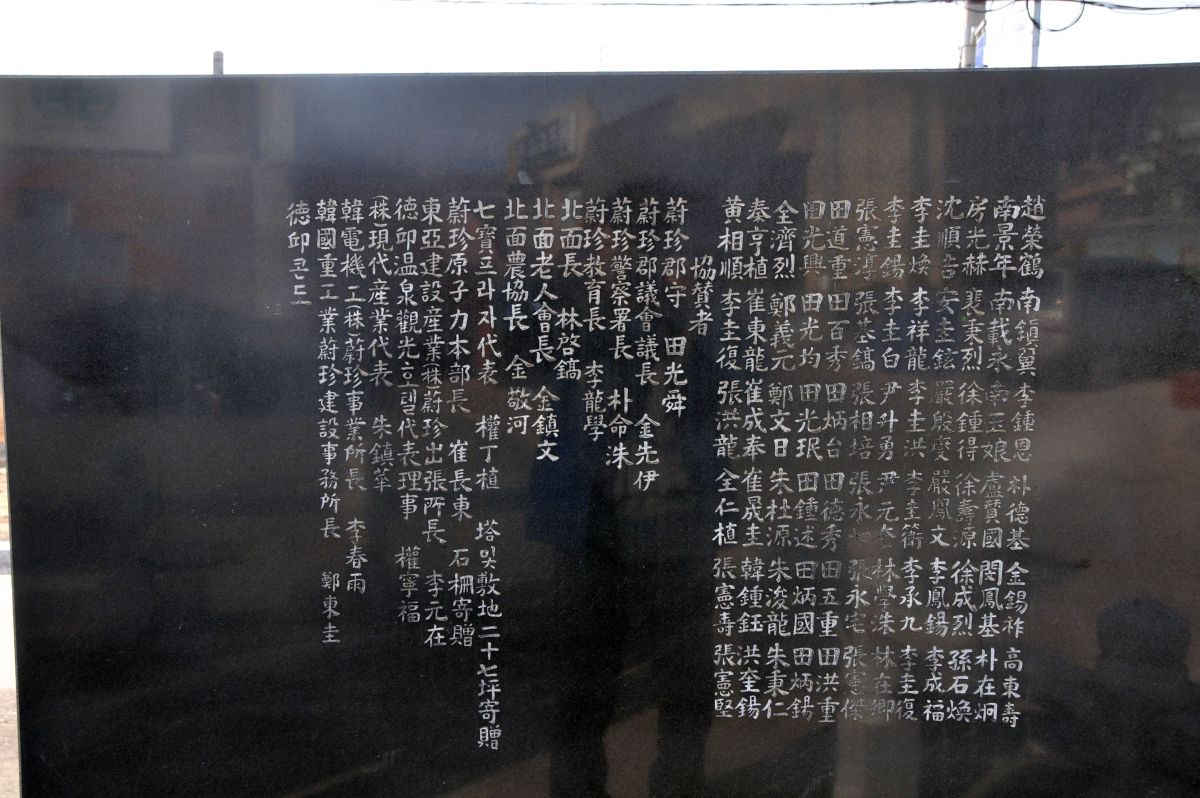 趙榮鶴 南鎭冀 李鍾恩 朴德基 金錫祚 高東壽
南景年 南載永 南玉娘 盧賛國 閔鳳基 朴在炯
房光赫 裴秉烈 徐鍾得 徐壽源 徐成烈 孫石煥
沈順吉 安圭鉉 嚴殷燮 嚴鳳文 李鳳錫 李成福
李圭煥 李祥龍 李圭洪 李圭衛 李承九 李圭復
李圭錫 李圭白 尹升勇 尹元奎 林學洙 林在卿
張憲淳 張基鎬 張相培 張永 張永宅 張憲傑
田道重 田百秀 田炳台 田德秀 田五重 田洪重
田光興 田光均 田光珉 田鍾述 田炳國 田炳錫
全濟烈 鄭義元 鄭文日 朱杜源 朱浚龍 朱秉仁
秦亨植 崔東龍 崔成奉 崔晟圭 韓鍾鈺 洪奎錫
黃相順 李圭復 張洪龍 全仁植 張憲壽 張憲堅
協賛者
蔚珍郡守 田光舜
蔚珍郡議會議長 金先伊
蔚珍警察署長 朴命洙
蔚珍敎育長 李龍學
北面長 林啓鎬
北面老人會長 金鎭文
北面農協長 金敬河
七寶프라자代表 權丁植 塔및敷地二十七坪寄贈
蔚珍原子力本部長 崔長東 石柵寄贈
東亞建設産業㈱蔚珍出張所長 李元在
德邱温泉觀光호텔代表理事 權寧福
㈱現代産業代表 朱鎭華
韓電機工㈱蔚珍事業所長 李春雨
韓國重工業蔚珍建設事務所長 鄭東圭
德邱콘도